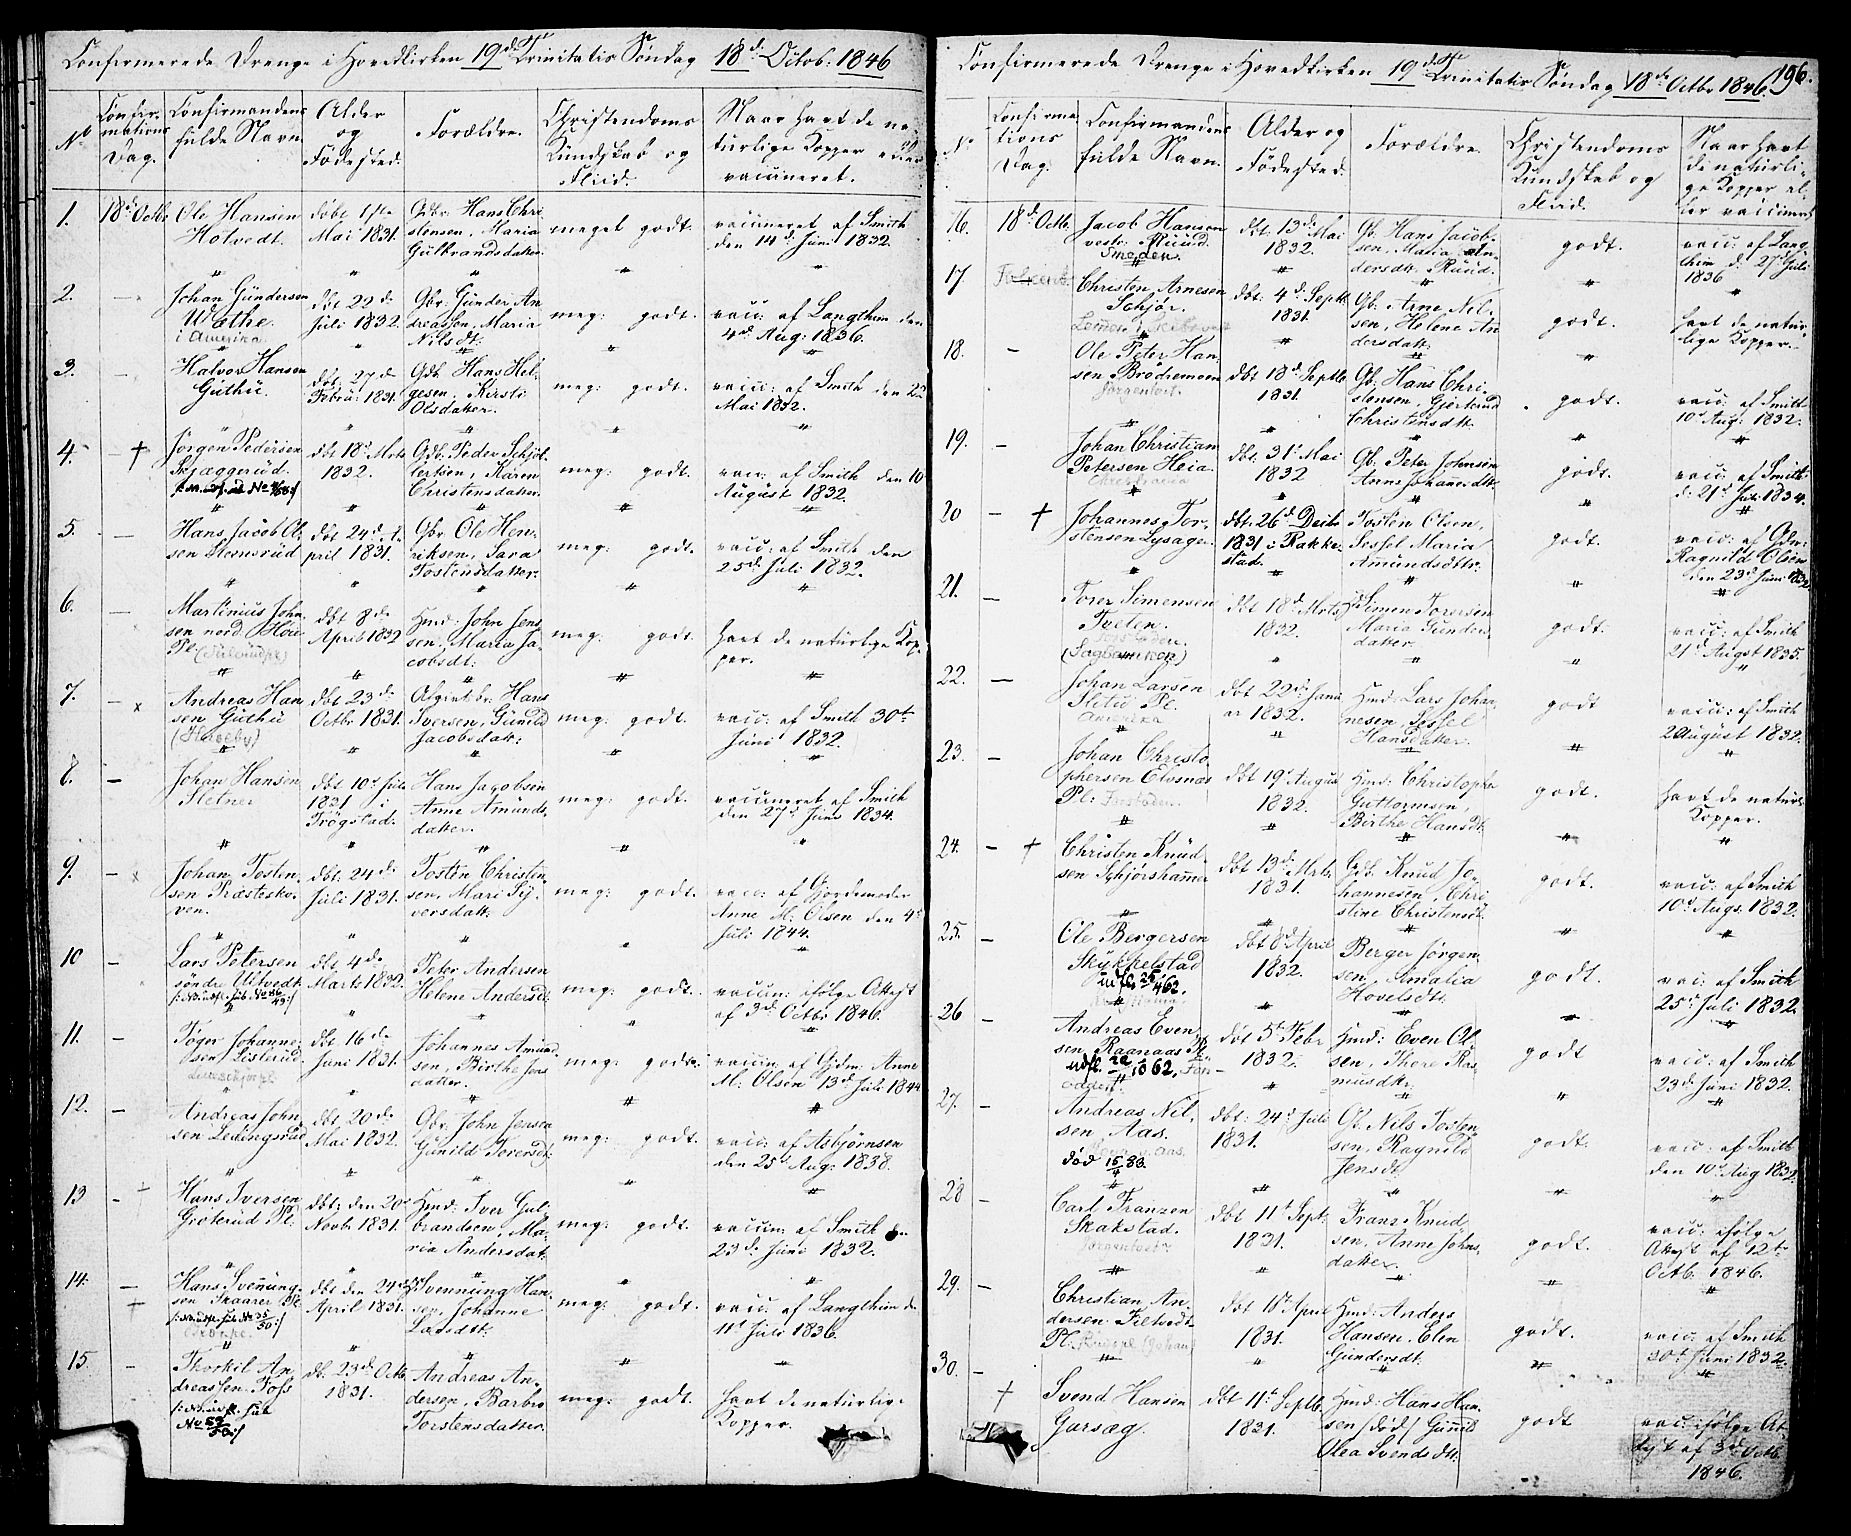 Confirmerede Drenge i Hovedkirken 19de Trinitatis Søndag 18d. Octob: 1846
No
Confirmations Dag.
Confirmandens fulde Navn.
Alder og Fødested.
Forældre.
Christendoms Kundskab og Fliid.
Naar havt de naturlige Kopper eller vaccineret.
1. 18d Octb. Ole Hansen Holvedt. døbt 1ste Mai 1831. Gbr. Hans Christensen, Maria Gulbrandsdatter. meget godt. vaccineret af Smith den 14d Juni 1832.
2. — Johan Gundersen Wathe. i Amerika dbt 22d Juli 1832. Gbr. Gunder Andreassen, Maria Nilsdt: meg: godt. vacc: af Langthim den 4d Aug: 1836.
3. — Halvor Hansen Guthu. dbt. 27d Febru: 1831. Gdb. Hans Helgesen, Kirsti Olsdatter. meg: godt. vacc: af Smith den 22 Mai 1832.
4. — † Jørgen Pedersen Skjæggerud. dbt 18d Mrts 1832. Gdb. Peder Christensdatter. meg: godt. vacc: af Smith den 10 August 1832.
5. — Hans Jacob Olsen Stensrud dbt 24d April 1831. Gbr. Ole Henriksen, Sara Tostensdatter. meg: godt. vacc: af Smith den 25d Juli 1832.
6. — Martinius Johnsen nord. Høie Pl. dbt 8d April 1832 Hmd: John Jensen, Maria Jacobsdt: meg: godt. havt de naturlige Kopper.
7. — x Andreas Hansen Guthu dbt 23d Octbr 1831. Hans Iversen, Gunild Jacobsdatt: meg: godt. vacc: af Smith 30te Juni 1832.
8. — Johan Hansen Sletner dbt 10d Juli 1831 i Trøgstad. Hans Jacobsen Anne Amundsdatter. meg: godt. vaccineret af Smith den 27d Juni 1834.
9. — x Johan Tostensen Præsteskoven. dbt. 24d Juli 1831. Tosten Christensen, Mari Syversdatt. meg: godt. vacc: af Gjordemoder Anne M: Olsen den 4d Juli 1844.
10 — Lars Petersen søndre Ultvedt dbt 4d Marts 1832. Peter Andersen Helene Andersdt. meg: godt. vaccin: ifølge Attest af 3d Octbr 1846.
11. — Tøger Johannesen Listerud dbt 16d Juni 1831. Johannes Amundsen, Birthe Jensdatter. meg: godt. vaccin af Gjdm. Anne M: Olsen 13d Juli 1844
12. — Andreas Johnsen Ledingsrud dbt. 20d Mai 1832. Gbr. John Jensen Gunild Torersdt: meg: godt. vacc: af Asbjørnsen den 25d Aug: 1838.
13 — Hans Iversen Grøterud Pl. dbt: den 20d Novb. 1831. Hmd: Iver Gulbrandsen, Maria Andersdatt. meg: godt. vaccin: af Smith d. 23d Juni 1832.
14. — † Hans Svennungsen Skaarer Pl. dbt den 24d April 1831. Svennung Hansen, Johanne Larsdtt. meg: godt. vacc: af Langthim d. 11d Juli 1836.
15 — Thorkil Andreassen Foss No 59/50 db. 23d Octb 1831. Andreas Andersen, Barbro Torstensdatter. meg: godt. havt de naturlige Kopper.
Confirmerede Drenge i Hovedkirken 19de Trinitatis Søndag 18d Octbr 1846. 196.
No
Confirmations Dag.
Confirmandens fulde Navn.
Alder og Fødested.
Forældre
Christendoms Kundskab og Fliid.
Naar havt de naturlige Kopper eller vaccineret
16. 18d Octb. Jacob Hansen vestr. Ruud Smeden. dbt. 13d Mai 1832. Gb. Hans Jacobsen, Maria Andersdt. Ruud. godt. vacc: af Langthim d. 27d Juli 1836
17 Christen Arnesen Schjør. dbt: 4d Septb 1831. Gb: Arne Nilsen, Helene Andersdatt. godt. havt de naturlige Kopper.
18. — Ole Peter Hansen Brødremoen dbt 18d Septb. 1831. Gb. Hans Christensen, Gjertrud Christensdtt. godt. vacc. af Smith 10d Aug: 1832.
19. — Johan Christian Petersen Heia dbt. 31d Mai 1832 Gb. Peter Johnsen Anne Johannesdtt. godt. vacc. af Smith d: 21d Juli 1834.
20 — † Johannes Torstensen Lysager. dbt: 26d Decbr 1831 i Rakkestad. Tosten Olsen, Sissel Maria Amundsdttr. godt. vacc. af Gdm: Ragnild Olsen den 23d Juni 1832
21. — Torer Simensen Tveten. dbt 18d Mrts 1832. Simen Torersen Maria Gundersdatter. godt. vacc: af Smith 21d August 1835.
22. — Johan Larsen Slitu Pl. Amerika dbt 22d Januar 1832. Hmd: Lars Johannesen, Sissel Hansdatter. godt vacc: af Smith 2 August 1832.
23. — Johan Christophersen Elvsnæs Pl: dbt 19d August 1832. Hmd: Christopher Guttormsen, Birthe Hansdt. godt. havt de naturl. Kopper.
24. — † Christen Knudsen Schjørshammer dbt 13d Mrts 1831. Gdb. Knud Johannesen, Christine Christensdt. godt. vacc: af Smith 10d Augs. 1832.
25. — Ole Bergersen Skykkelstad dbt 8d April 1832. Berger Jørgensen, Amalia Hovelsdt. godt. vac: af Smith 25d Juli 1832.
26 — Andreas Evensen Raanaas Pl. dbt 5te Febr 1832. Hmd: Even Olsen, Thore Rasmusdttr. godt vacc: af Smith 23d Juni 1832.
27. — Andreas Nilsen, Aas. død 15/4 83. dbt: 24d Juli 1831. Gb. Nils Tostensen, Ragnild Jensdt. godt. vacc: af Smith den 10d Aug 1832.
28 — Carl Franzen Skakstad. dbt 11te Sept. 1831. Frans Knudsen, Anne Johnsdatter. godt. vacc: ifølge Attest af 12te Octb. 1846.
29. — Christian Andersen Tiltvedt Pl: dbt 10d April 1831. Hmd: Anders Hansen, Elen Gundersdt. godt. vacc: af Smith 30te Juni 1832.
30. — † Svend Hansen Garsæg. dbt 11te Septb. 1831. Hmd: Hans Hansen (død) Gunild Olea Svendsdtt. godt vacc: ifølge Attest af 3d Octb. 1846.